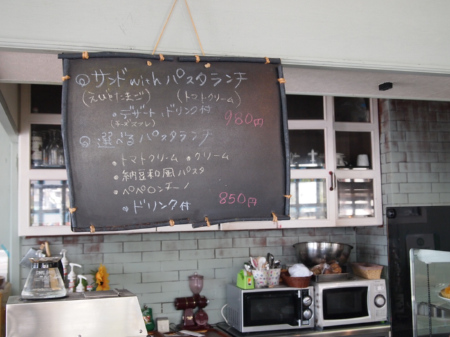 サンドwithパスタランチ
(えびとたまご) (トマトクリーム)
・デザート、ドリンク付
980円
選べるパスタランチ
・トマトクリーム ・クリーム
・納豆和風パスタ
・ペペロンチーノ
・ドリンク付 850円